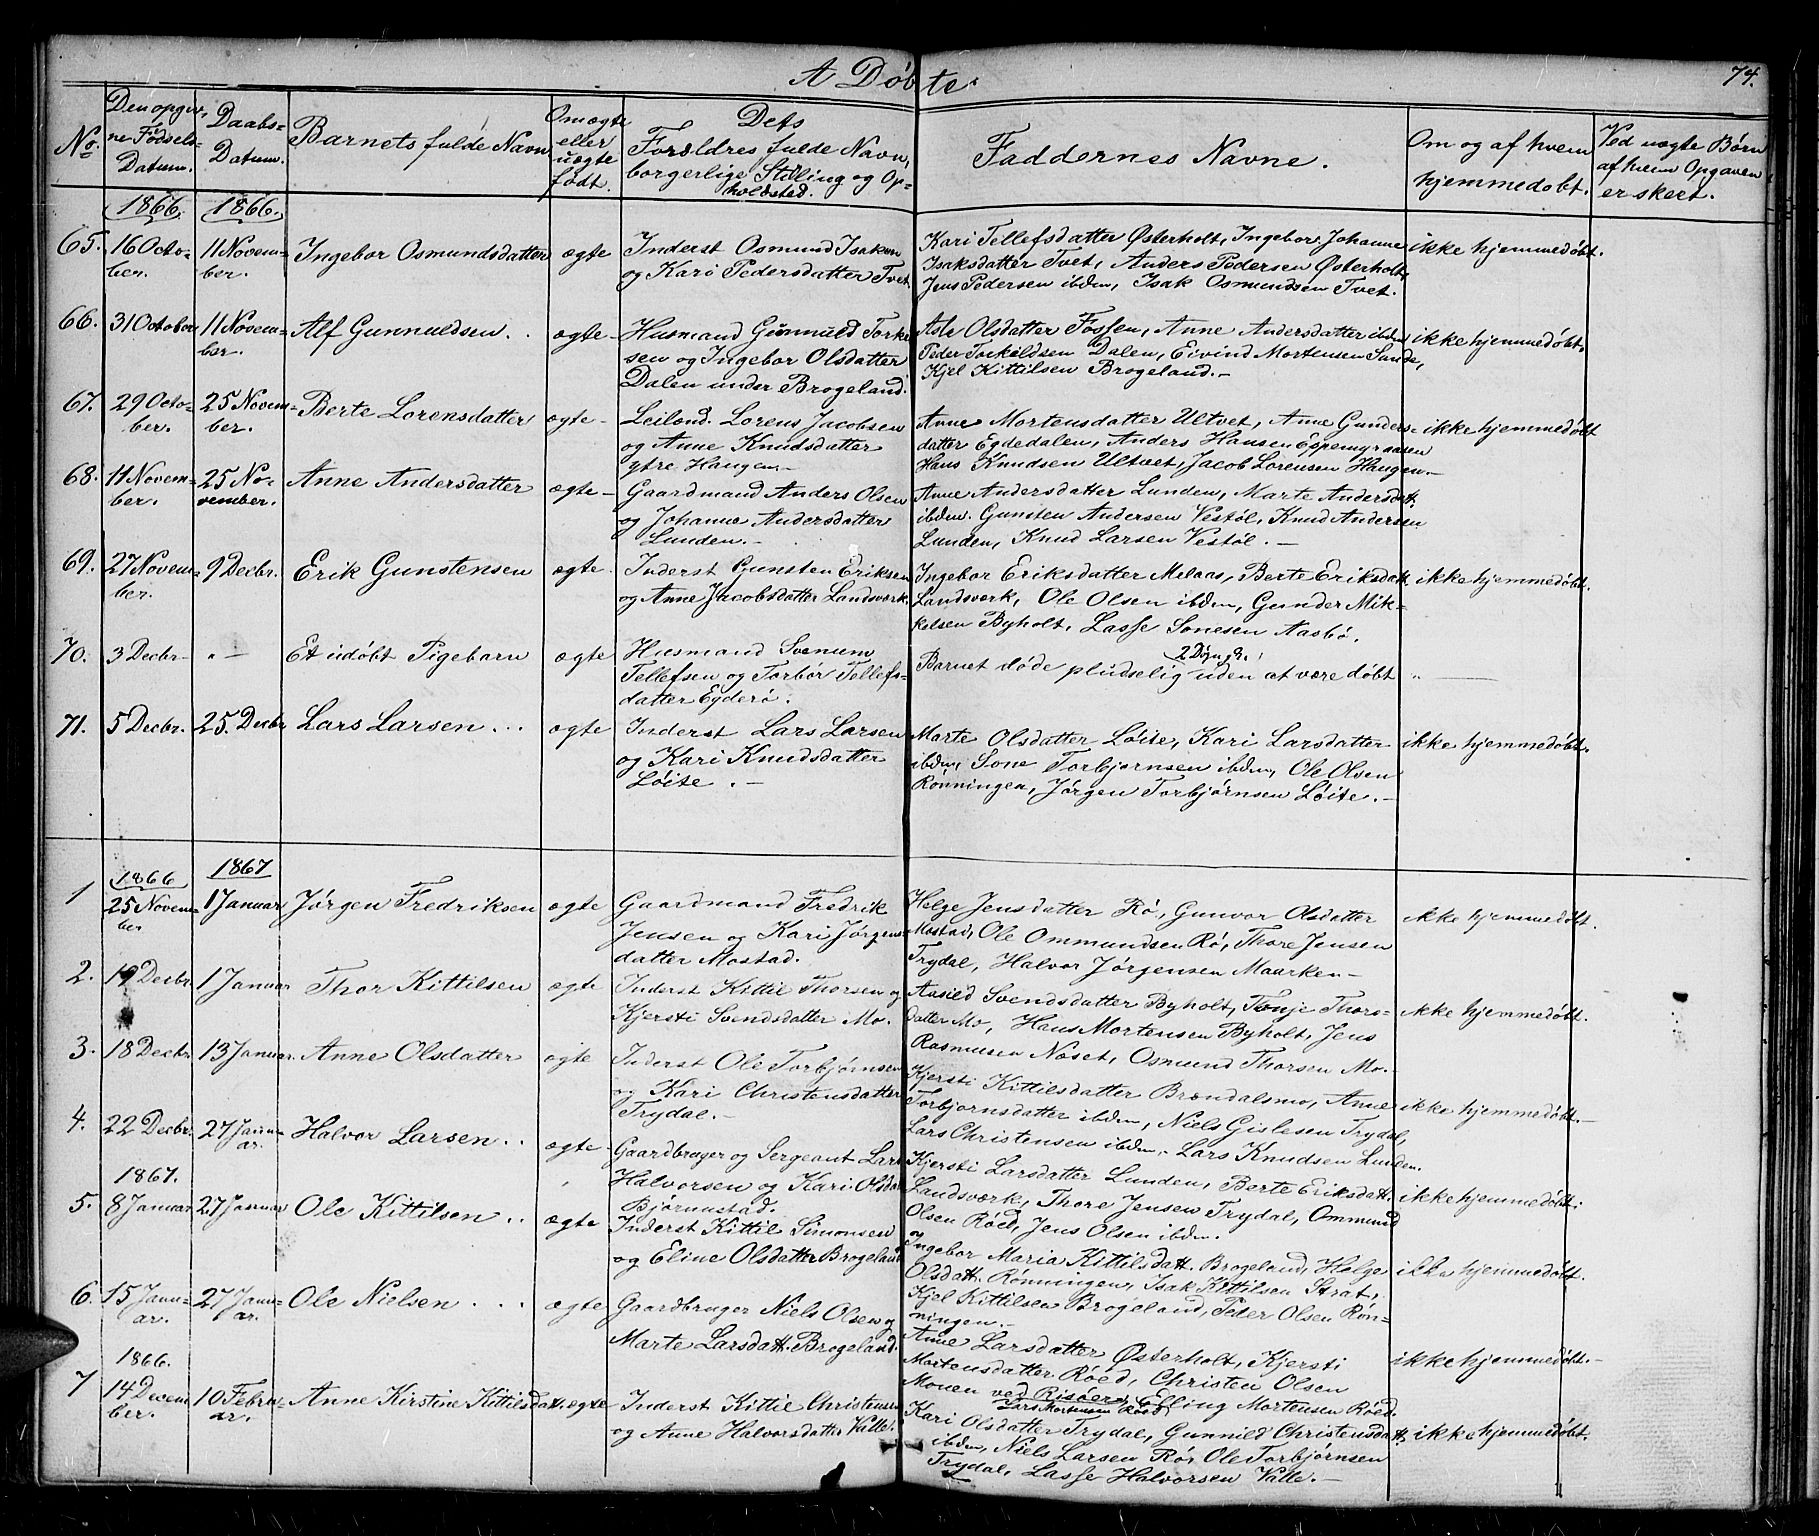 A Døbte.
74.
No.
Den opgiv,
ne Fødsels
Datum.
Daabs=
Datum.
Barnets fulde Navn
Om ægte
eller
uægte
født.
Dets
Forældres fulde Navn,
borgerlige Stilling og Op-
holdsted.
Faddernes Navne.
Om og af hvem
hjemmedøbt.
Ved uægte Børn
af hvem Opgaven
er skert.
1866.
1866.
65.
16 Octo-
ber.
11 Novem-
ber.
Ingebor Osmundsdatter
ægte
Inderst Osmund Isaksen
og Kari Pedersdatter Tvet
Kari Tellefsdatter Østerholt, Ingebor Johanne
Isaksdatter Tvet, Anders Pedersen Østerholt,
Jens Pedersen ibdm, Isak Osmundsen Tvet.
ikke hjemmedøbt.
66.
31 October
11 Novem-
ber.
Alf Gunnuldsen . .
ægte-
Husmand Gunnuld Torke
sen og Ingebor Olsdatter
Dalen under Brogeland.
Olsdatter Fossen, Anne Andersdatter ibdm
Peder Torkildsen Dalen, Eivind Mortensen Sande,
Kjel Kittilsen Brogeland.-
ikke hjemmedøbt.
67.
29 Octo-
ber.
25 Novem-
ber.
Berte Lorensdatter
ægte-
Leilænd. Lorens Jacobsen
og Anne Knudsdatter
ytre Haugen.-
Anne Mortensdatter Ultvet, Anne Gunders-
datter Egdedalen, Anders Hansen Eppemyraasen
Hans Knudsen Ultvet, Jacob Lorensen Haugen.-
ikke hjemmedøbt
68.
11 Novem-
ber.
25 No-
vember.
Anne Andersdatter
ægte-
Gaardmand Anders Olsen
og Johanne Andersdatter
Lunden.-
Anne Andersdatter Lunden, Marte Andersdatt.
ibdm. Gunsten Andersen Vestøl, Knud Andersen
Lunden, Knud Larsen Vestøl.-
69.
27 Novem-
ber.
9 Decbr.
Erik Gunstensen
ægte-
Inderst Gunsten Eriksen
og Anne Jacobsdatter Landsværk.
Ingebor Eriksdatter Melaas, Berte Eriksdatt.
Landsværk, Ole Olsen ibdm, Gunder Mik-
kelsen Byholt, Lasse Sonesen Aasbø.
ikke hjemmedøbt.
70.
3 Decbr-
" -
Et udøbt Pigebarn
ægte
Husmand Svenum
Tellefsen og Torbør Tellefs-
datter Egderø.
2 Døgn g.
Barnet døde pludselig uden at være døbt
" -
71.
5 Decbr.
25. Decbr
Lars Larsen . . .
ægte
Inderst Lars Larsen
og Kari Knudsdatter
Løite .-
Marte Olsdatter Løite, Kari Larsdatter
ibdm, Sone Torbjørnsen ibdm, Ole Olsen
Rønningen, Jørgen Torbjørnsen Løite.-
ikke hjemmedøbt.
1866
1867
1
25 Novem-
ber
1 Januar
Jørgen Fredriksen
ægte
Gaardmand Fredrik
Jensen og Kari Jørgens
datter Mostad.
Helge Jensdatter Rø, Gunvor Olsdatter
Mostad, Ole Ommundsen Rø, Thore Jensen
Trydal, Halvor Jørgensen Maarken-
ikke hjemmedøbt.
2.
19 Decbr.
1 Januar
Thor Kittilsen
ægte
Inderst Kittil Thorsen og
Kjersti Svendsdatter Mo.
Aasild Svendsdatter Byholt, Tonje Thors-
datter Mo, Hans Mortensen Byholt, Jens
Rasmusen Noset, Osmund Thorsen Mo.
ikke hjemmedøbt.
3.
18 Decbr
13 Januar.
Anne Olsdatter
ægte
Inderst Ole Torbjørnsen
og Kari Christensdatter
Trydal.-
Kjersti Kittilsdatter Brændalsmo, Anne
Torbjørnsdatter ibdm, Niels Gislesen Trydal,
Lars Christensen ibdm,- Lars Knudsen Lunden.
ikke hjemmedøbt.-
4.
22 Decbr.
27 Janu-
ar.
Halvor Larsen . .
ægte-
Gaardbruger og Sergeant Lars
Halvorsen og Kari Olsdat
Bjørnestad.
Kjersti Larsdatter Lunden, Berte Eriksdatt.
Landsværk, Thore Jensen Trydal, Ommund
Olsen Røed, Jens Olsen ibdm.
ikke hjemmedøbt.
1867.
5.
8 Januar
27 Januar
Ole Kittilsen . .
ægte
Inderst Kittil Simonsen
og Eline Olsdatter Brogeland
Ingebor Maria Kittilsdatt. Brogeland, Helge
Olsdatt. Rønningen, Isak Kittilsen Strat,
Kjel Kittilsen Brogeland, Peder Olsen Røn-
ningen.-
ikke hjemmedøbt.
6.
15 Janu-
ar.
27 Janu-
ar.
Ole Nielsen . . . .
ægte
Gaardbruger Niels Olsen og
Marte Larsdatt. Brogeland.
Anne Larsdatter Østerholt, Kjersti
Mortensdatter Røed, Christen Olsen
Moen ved Risøer, Elling Mortensen Røed.
Lars Mortensen Røed
ikke hjemmedøbt.-
1866.
7
14 Decem-
ber.
10 Febru-
ar.
Anne Kirstine Kittilsdatt.
ægte
Inderst Kittil Christensen
og Anne Halvorsdatter Valle.
Kari Olsdatter Trydal, Gunnild Christensdatt.
ibdm, Niels Larsen Rø, Ole Torbjørnsen
Trydal, Lasse Halvorsen Valle.-
ikke hjemmedøbt.